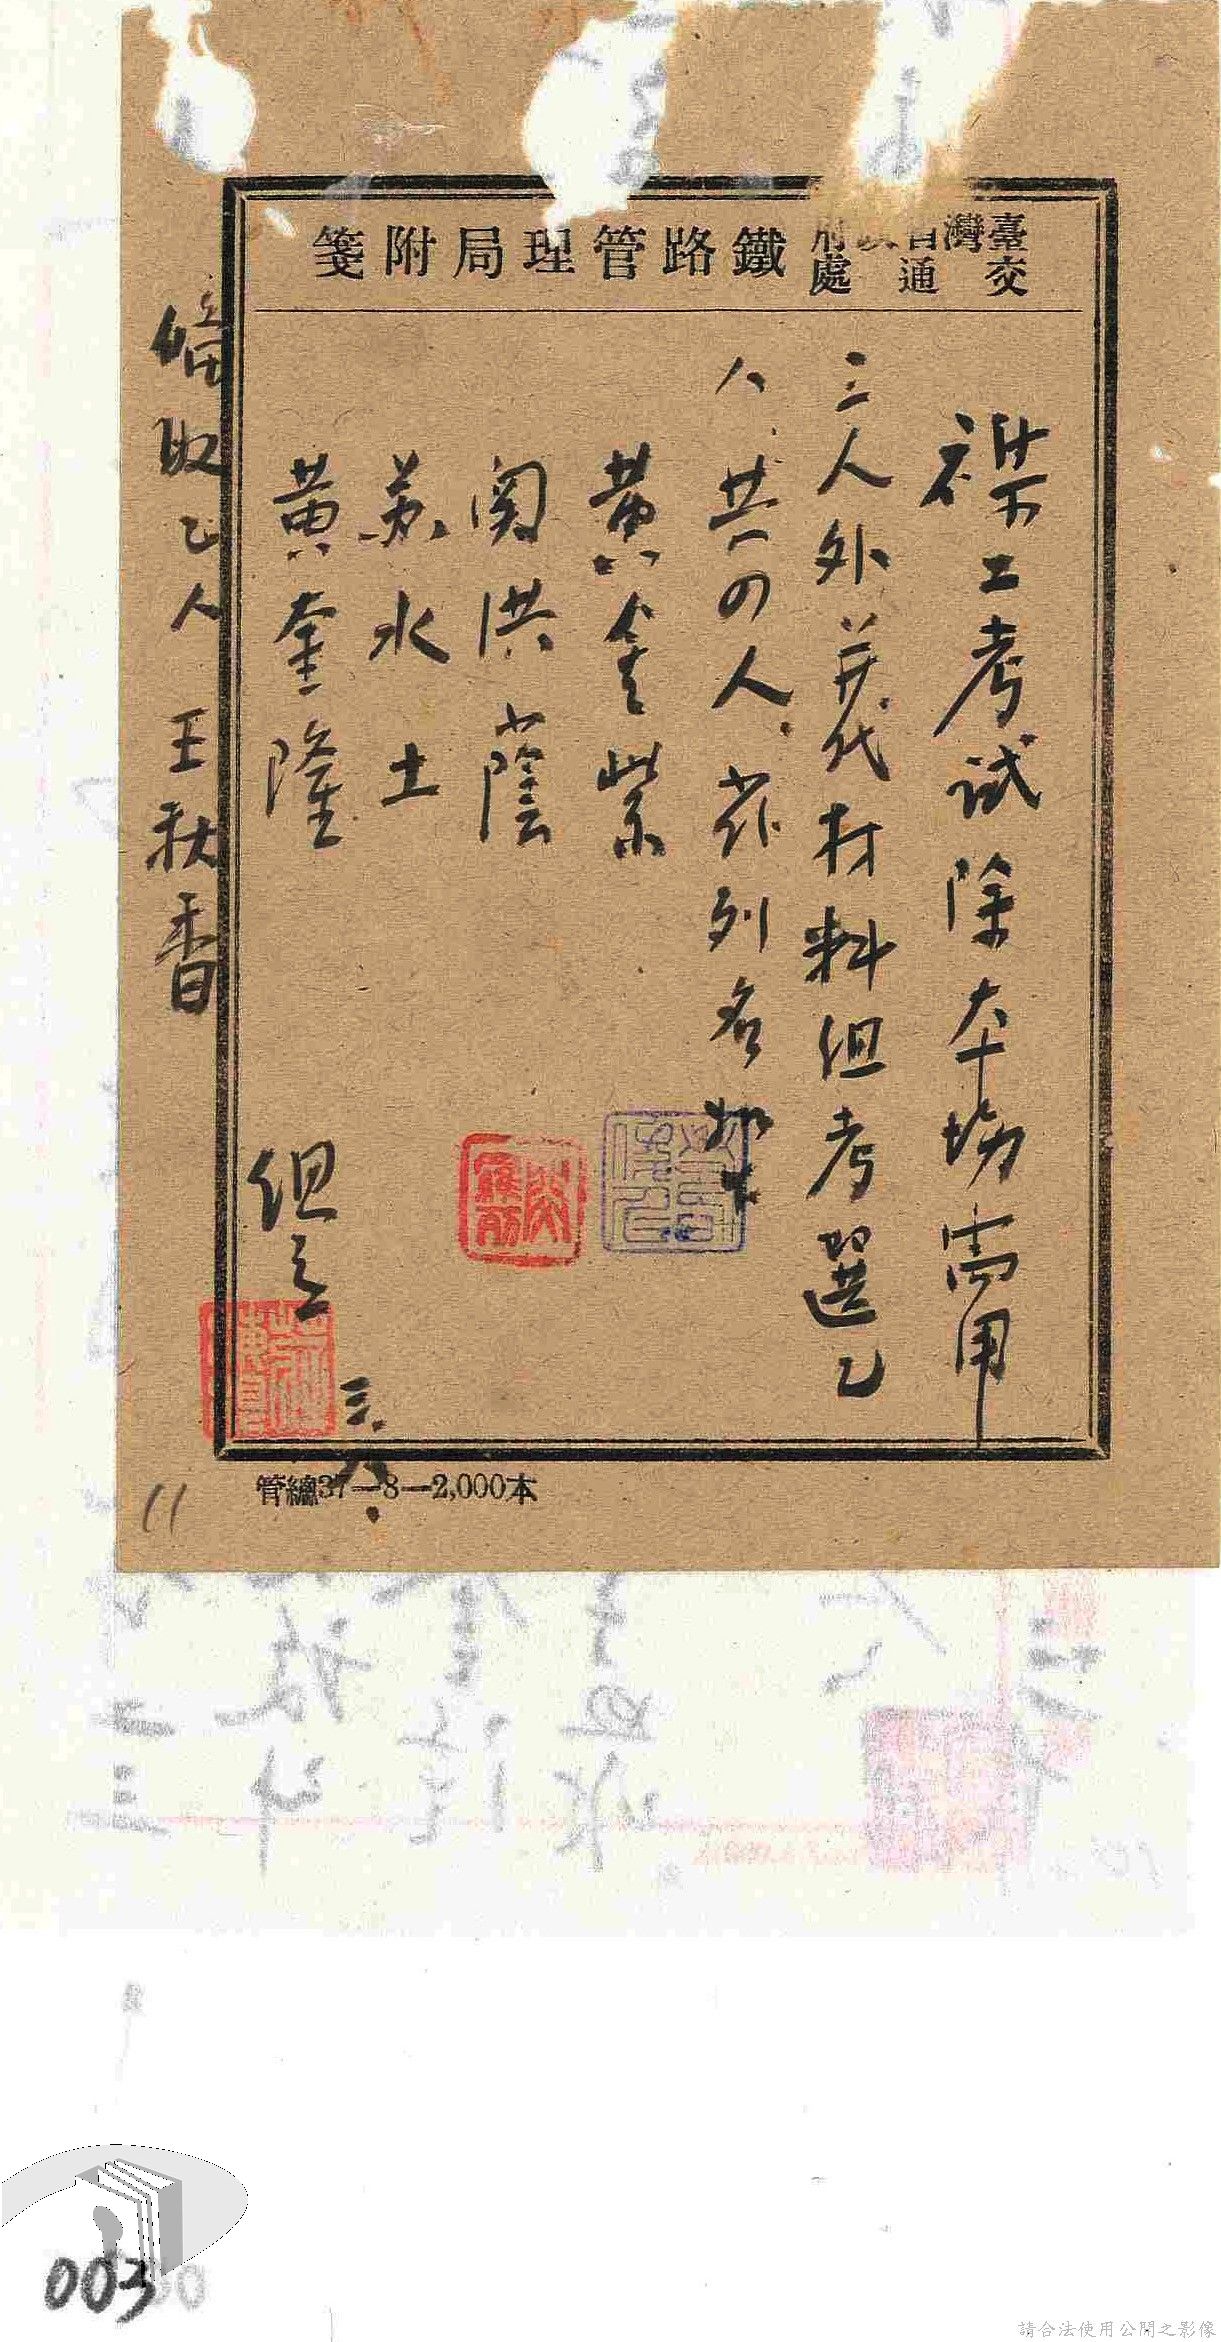 臺灣省政府交通處鐵路管理局附箋
裸工考試除本場需用
三人外并代材料組考選乙
人共四人茲列名如下
黃金紫
闕洪蔭
蘇水土
黃奎隆
備取乙人王秋香
三八
管總37－8－2,000本
11
003
請合法使用公開之影像